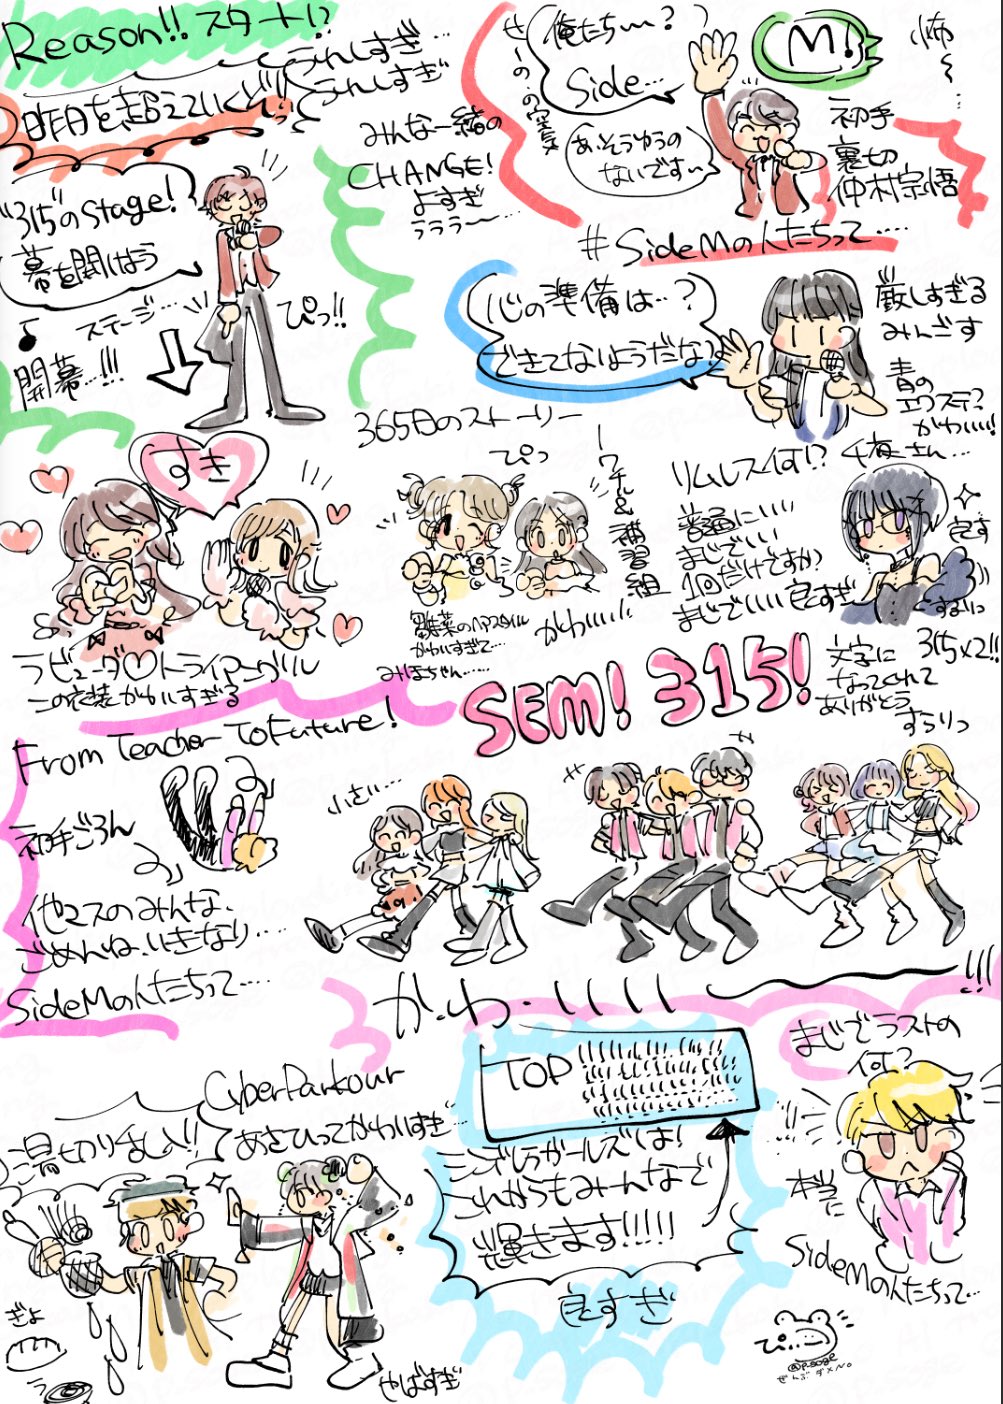 Reason!! スタート!?
うれしすぎ…
うれしすぎ
昨日を超えていくぞ!!
"315"のStage!
幕を開けよう
ステージ…
開幕…!!!
ぴっ!!
みんな一緒の
CHANGE!
よすぎ
ううう〜…
せーの、の空気
俺たち〜?
Side…
M!
怖〜
あ、そうゆうの
ないです…
初手
裏切り
仲村宗悟
#SideMの人たちって….
心の準備は…?
できてないようだな?
厳しすぎる
みんごす
青の
エクステ?
かわいい!
千種さん…
すき
ラビューダ♡トライアングル
この衣装かわいすぎる
365日のストーリー
ぴっ
補習組
かわいいい!!
雛菜のヘアスタイル
かわいすぎて…
みほちゃん……
リムレス何!?
普通にいい
まじでいい
1回だけですか?
まじでいい良すぎ
良す
するりっ
SEM! 315!
315x2!!
文字に
なってくれて
ありがとう
ずらりっ
From Teacher To Future!
初手ごろん
他マスのみんな、
ごめんね、いきなり….
SideMの人たちって….
かわいいいい〜!!!
Cyber Parkour
湯切りまし!!
あさひってかわいすぎ…
ぎょ
う
やばすぎ
TOP
シンデレラガールズは!
これからもみーんなで
輝きます!!!!!
良すぎ
まじでラストの
何?
本当に
SideMの人たちって…
ぴ…